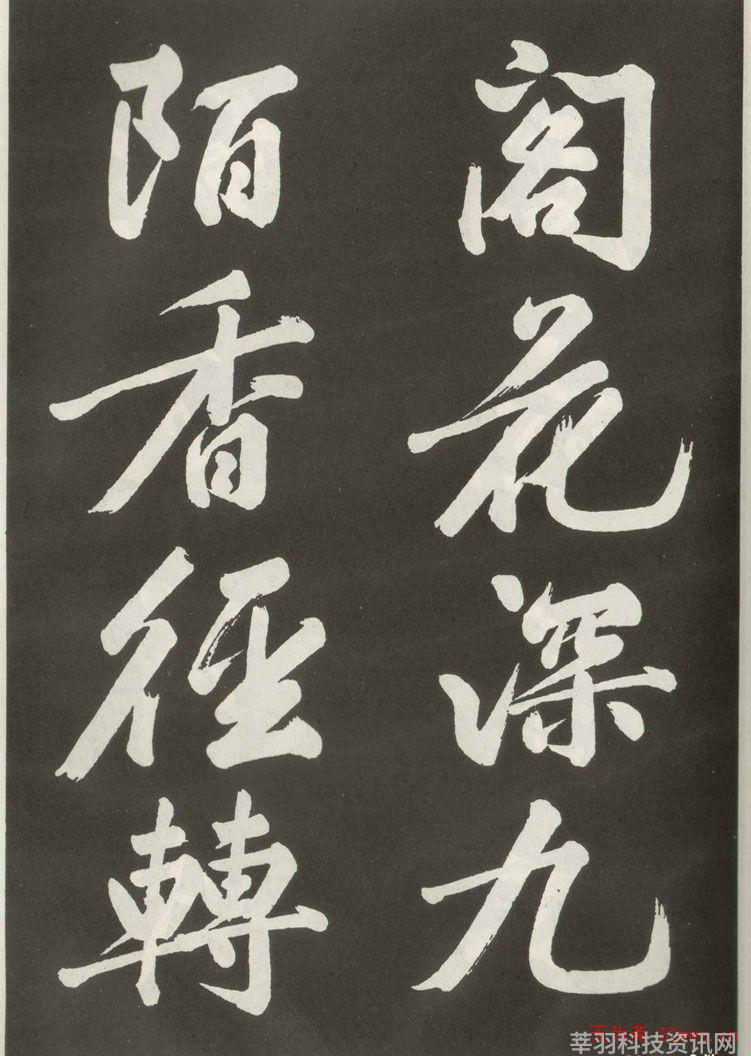 閣花深九
陌香徑轉
莘羽科技资讯网